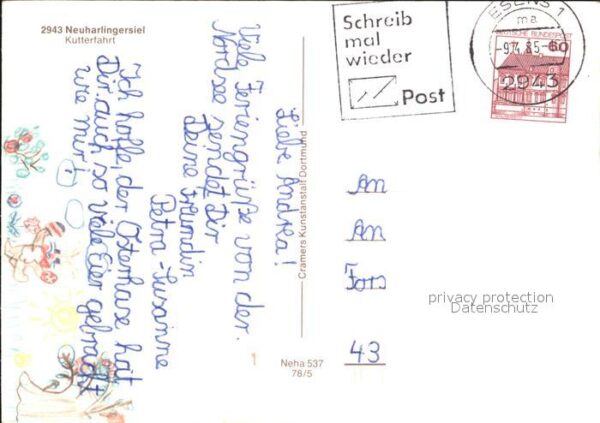 2943 Neuharlingersiel
Kutterfahrt
Liebe Andrea!
Viele Feriengrüße von der
Nordsee sendet Dir
Deine Freundin
Petra-Susanne
Ich hoffe, der Osterhase hat
Dir auch so viele Eier gebracht
wie mir!
Cramers Kunstanstalt Dortmund
Neha 537
78/5
1
Schreib
mal
wieder
Post
ESENS 1
ma
-9.4.85-
2943
DEUTSCHE BUNDESPOST
60
An
An
43
privacy protection
Datenschutz